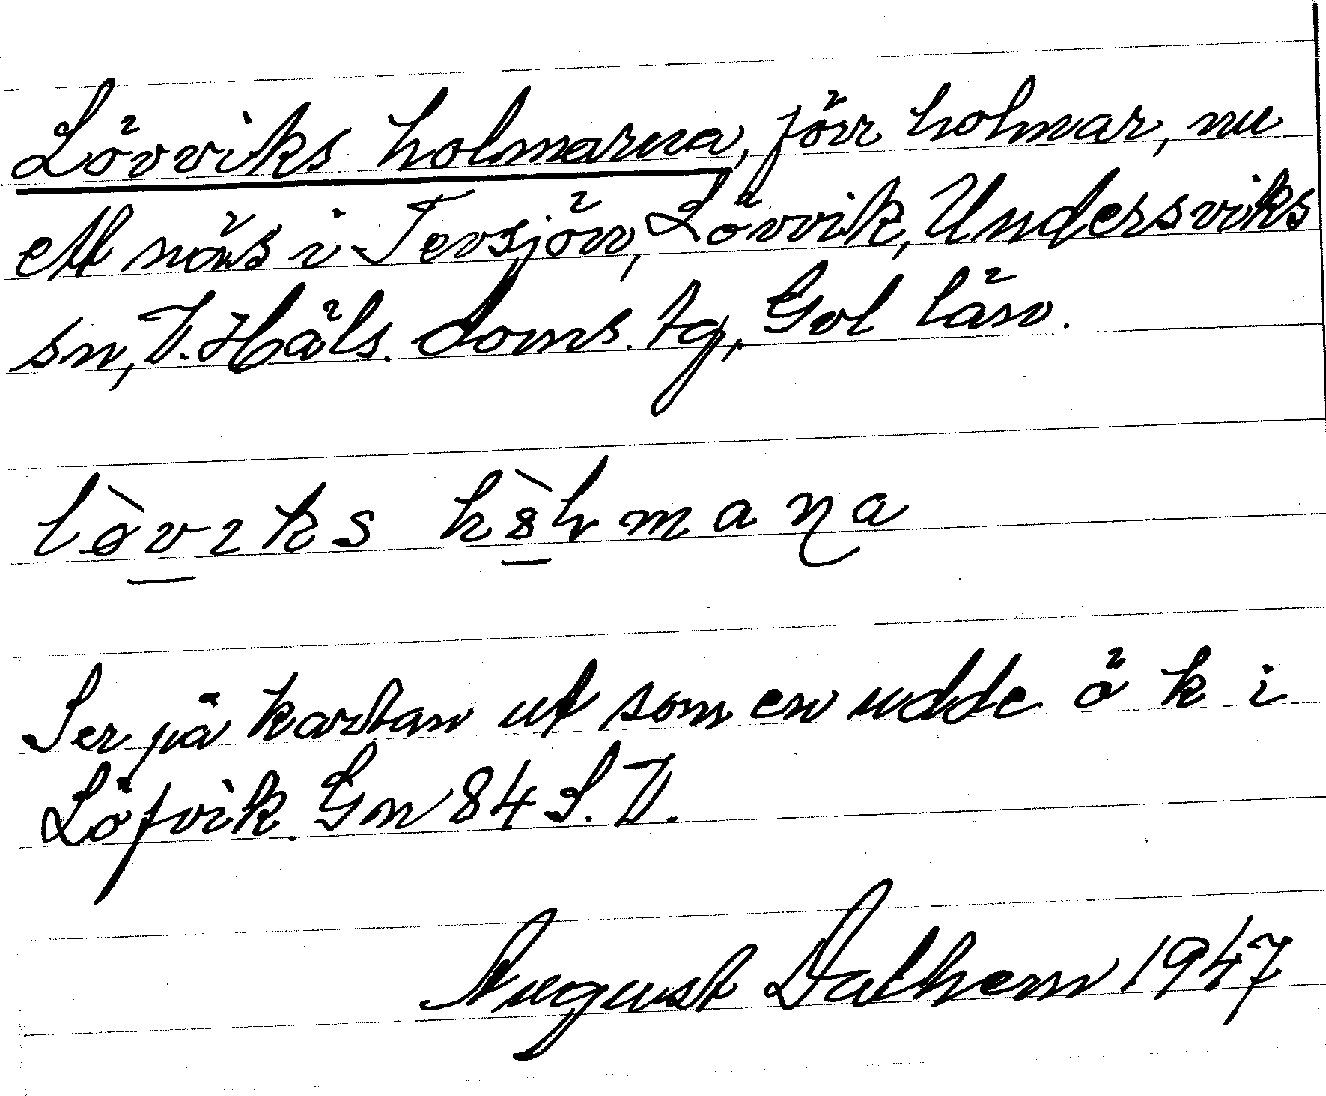 Lövviks holmarna, förr holmar, nu
ett näs i Tevsjön, Lövvik, Undersviks
sn, V. Häls. doms. tg, Gvl län.
Ser på kartan ut som en udde å k i
Löfvik. Gn 84 S. V.
August Dalhem 1947